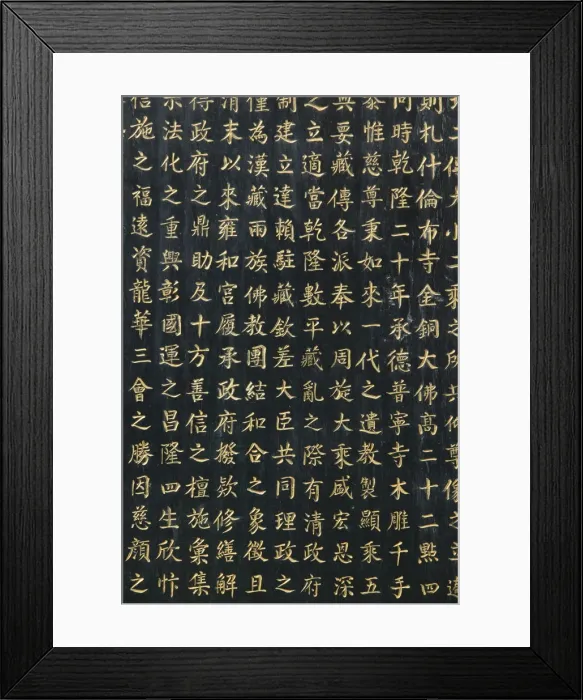 二傳大小二乘之所共仰尊像之
則札什倫布寺金銅大佛高二十二點四
同時乾隆二十年承德普寧寺木雕千手
泰惟慈尊秉如來一代之遺教製顯乘五
與要藏傳各派奉以周旋大乘感宏恩深
之立適當乾隆數平藏亂之際有清政府
制建立達賴駐藏欽差大臣共同理政之
僅為漢藏兩族佛教團結和合之象徵且
清末以來雍和宮履承政府撥款修繕解
待政府之鼎助及十方善信之檀施彙集
示法化之重興彰國運之昌隆四生欣忭
信施之福遠資龍華三會之勝因慈顏之